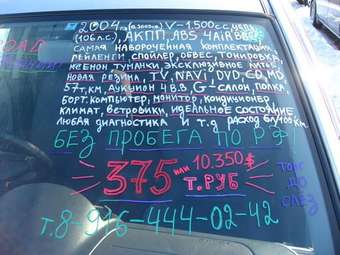 2004г. (в.2005г) V-1.500сс цепь
(106 л.с), АКПП, ABS, 4 AIRBEG
САМАЯ НАВОРОЧЕННАЯ КОМПЛЕКТАЦИЯ
РЕЙЛЕНГИ СПОЙЛЕР, ОБВЕС, ТОНИРОВКА
КСЕНОН ТУМАНКИ ЭКСКЛЮЗИВНОЕ ЛИТЬЁ
НОВАЯ РЕЗИНА, TV, NAVI, DVD, CD, MD
57 т.км, АУКЦИОН 4 B.B, G-САЛОН, ПОЛКА.
БОРТ. КОМПЬЮТЕР, МОНИТОР, КОНДИЦИОНЕР
КЛИМАТ, ВЕТРОВИКИ, ИДЕАЛЬНОЕ СОСТОЯНИЕ
ЛЮБАЯ ДИАГНОСТИКА И Т.Д РАСХОД 6л/100км.
БЕЗ ПРОБЕГА ПО РФ
375 ИЛИ 10.350$
Т.РУБ
ТОРГ
ДО
СЛЁЗ
т.8-916-444-02-42